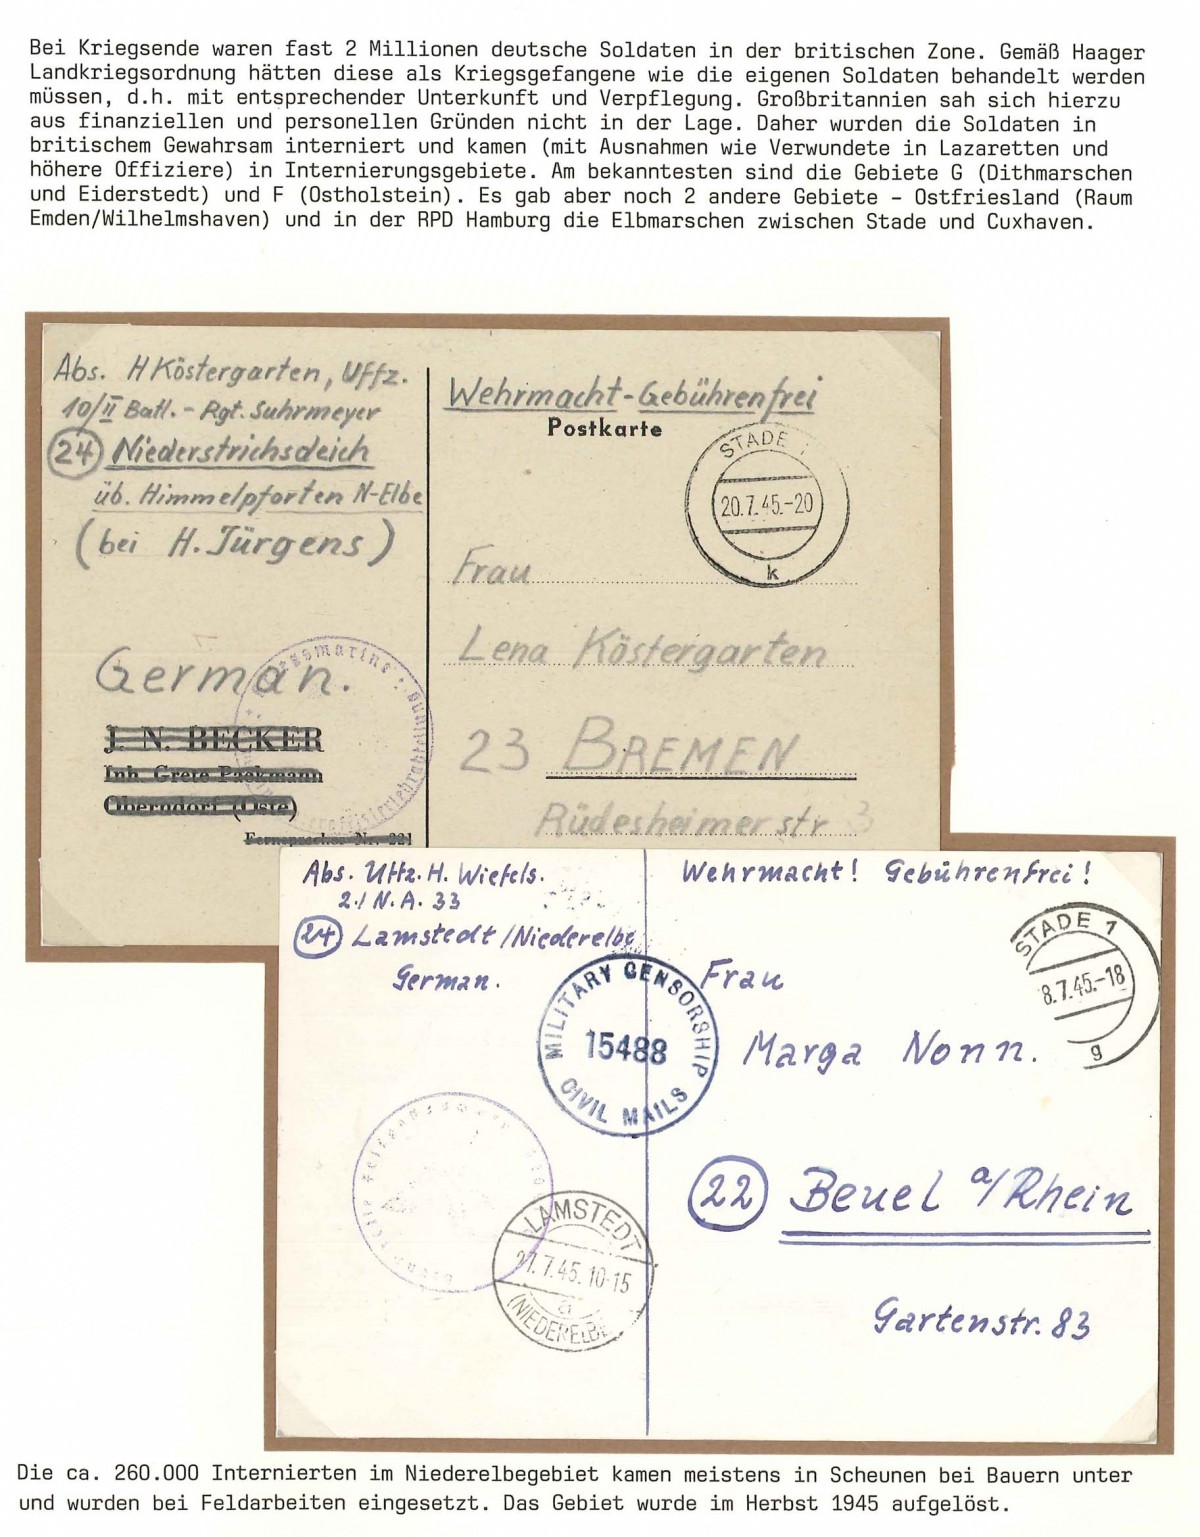 Bei Kriegsende waren fast 2 Millionen deutsche Soldaten in der britischen Zone. Gemäß Haager
Landkriegsordnung hätten diese als Kriegsgefangene wie die eigenen Soldaten behandelt werden
müssen, d.h. mit entsprechender Unterkunft und Verpflegung. Großbritannien sah sich hierzu
aus finanziellen und personellen Gründen nicht in der Lage. Daher wurden die Soldaten in
britischem Gewahrsam interniert und kamen (mit Ausnahmen wie Verwundete in Lazaretten und
höhere Offiziere) in Internierungsgebiete. Am bekanntesten sind die Gebiete G (Dithmarschen
und Eiderstedt) und F (Ostholstein). Es gab aber noch 2 andere Gebiete – Ostfriesland (Raum
Emden/Wilhelmshaven) und in der RPD Hamburg die Elbmarschen zwischen Stade und Cuxhaven.
Abs. H Köstergarten, Uffz.
10/II Batl. - Rgt. Suhrmeyer
24 Niederstrichsdeich
üb. Himmelpforten N-Elbe
(bei H. Jürgens)
German.
J. N. BECKER
Inh. Grete Packmann
Oberndorf (Oste)
Fernsprecher Nr. 221
Wehrmacht-Gebührenfrei
Postkarte
STADE 1
20.7.45.-20
k
Frau
Lena Köstergarten
23 BREMEN
Rüdesheimerstr 3
Abs. Uffz. H. Wiefels.
2./N.A. 33
24 Lamstedt/Niederelbe
German.
MILITARY CENSORSHIP
15488
CIVIL MAILS
LAMSTEDT
27.7.45.10-15
a
(NIEDERELBE
Wehrmacht! Gebührenfrei!
STADE 1
8.7.45.-18
g
Frau
Marga Nonn.
22 Beuel a/Rhein
Gartenstr. 83
Die ca. 260.000 Internierten im Niederelbegebiet kamen meistens in Scheunen bei Bauern unter
und wurden bei Feldarbeiten eingesetzt. Das Gebiet wurde im Herbst 1945 aufgelöst.